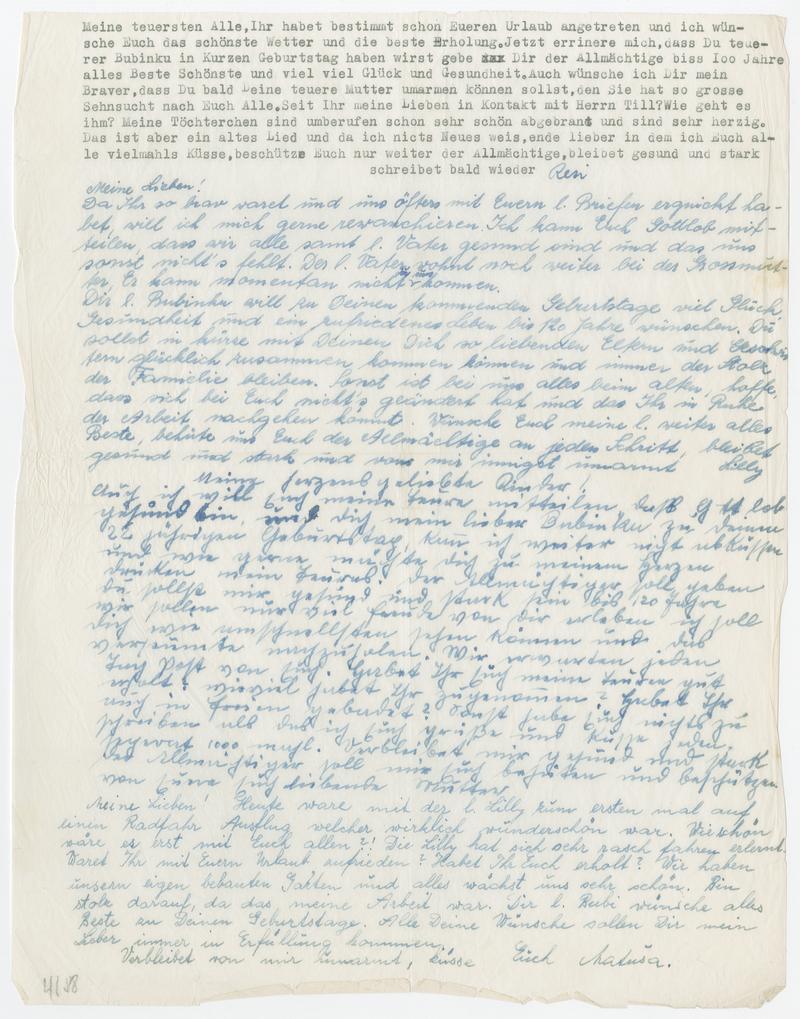 Meine teuersten Alle,Ihr habet bestimmt schon Eueren Urlaub angetreten und ich wün-
sche Euch das schönste Wetter und die beste Erholung.Jetzt errinere mich,dass Du teue-
rer Bubinku in Kurzen Geburtstag haben wirst gebe Dir der Allmächtige biss Ioo Jahre
alles Beste Schönste und viel viel Glück und Gesundheit.Auch wünsche ich Dir mein
Braver,dass Du bald Deine teuere Mutter umarmen können sollst,den Sie hat so grosse
Sehnsucht nach Euch Alle.Seit Ihr meine Lieben in Kontakt mit Herrn Till?Wie geht es
ihm? Meine Töchterchen sind umberufen schon sehr schön abgebrant und sind sehr herzig.
Das ist aber ein altes Lied und da ich nicts Neues weis,ende lieber in dem ich Euch al-
le vielmahls Küsse,beschütze Euch nur weiter der Allmächtige,bleibet gesund und stark
schreibet bald wieder Resi
Meine Lieben!
Da Ihr so brav waret und uns öfters mit Euern l. Briefen erquickt ha-
bet, will ich mich gerne rewanchieren. Ich kann Euch Gottlob mit-
teilen, dass wir alle samt l. Vater gesund sind und das uns
sonst nicht's fehlt. Der l. Vater wohnt noch weiter bei der Grossmut-
ter. Er kann momentan nicht zu uns kommen.
Dir l. Bubinku will zu Deinen kommenden Geburtstage viel Glück,
Gesundheit und ein zufriedenes Leben bis 120 Jahre wünschen. Du
sollst in kürze mit Deinen Dich so liebenden Eltern und Geschwis
tern glücklich zusammen kommen können und immer der Stolz
der Familie bleiben. Sonst ist bei uns alles beim alten, hoffe,
dass sich bei Euch nicht's geändert hat und das Ihr in Ruhe
der Arbeit nachgehen könnt. Wünsche Euch meine l. weiter alles
Beste, behüte uns Euch der Allmächtige an jeden Schritt, bleibet
gesund und stark und von mir innigst umarmt Lilly
Meine herzens geliebte Kinder!
Auch ich will Euch meine teure mitteilen, daß Gott lob
gesund bin, und dich mein lieber Bubinku zu deinem
22 jährigen Geburtstag kann ich weiter nicht abküssen
und wie gerne möchte dich zu meinem herzen
drücken mein teures. der Allmächtiger soll geben
du sollst mir gesund und stark sein bis 120 Jahre
wir sollen nur viel freude von dir erleben ich soll
dich wie amschnellsten sehen können und das
versäumte nachzuholen. Wir erwarten jeden
Tag Post von Euch. Habet Ihr Euch meine teuren gut
erholt? wieviel habet Ihr zugenommen? Habet Ihr
auch in freien gebadet? Sonst habe Euch nichts zu
schreiben als das ich Euch grüße und küsse jeden
1000 mahl. Verbleibet mir gesund und stark
der Allmächtiger soll mir Euch behüten und beschützen
von Eure Euch liebende Mutter
Meine Lieben! Heute ware mit der l. Lilly zum ersten mal auf
einen Radfahr Ausflug welcher wirklich wunderschön war. Wie schön
wäre es erst mit Euch allen?! Die Lilly hat sich sehr rasch fahren erlernt.
Waret Ihr mit Euern Urlaub zufrieden? Habet Ihr Euch erholt? Wir haben
unsern eigen bebauten Garten und alles wächst uns sehr schön. Bin
stolz darauf, da das, meine Arbeit war. Dir l. Bubi wünsche alles
Beste zu Deinen Geburtstage. Alle Deine Wünsche sollen Dir mein
Lieber immer in Erfüllung kommen.
Verbleibet von mir umarmt, küsse Euch Matusa.